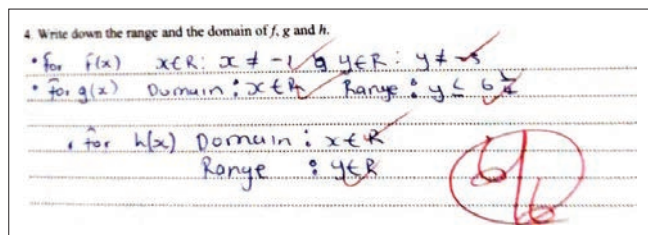 4. Write down the range and the domain of f, g and h.
• for f(x) x∈R: x ≠ -1 y∈R: y ≠ -3
• for g(x) Domain: x∈R Range: y ≤ 6 1/4
• for h(x) Domain: x∈R
Range : y∈R
6/6